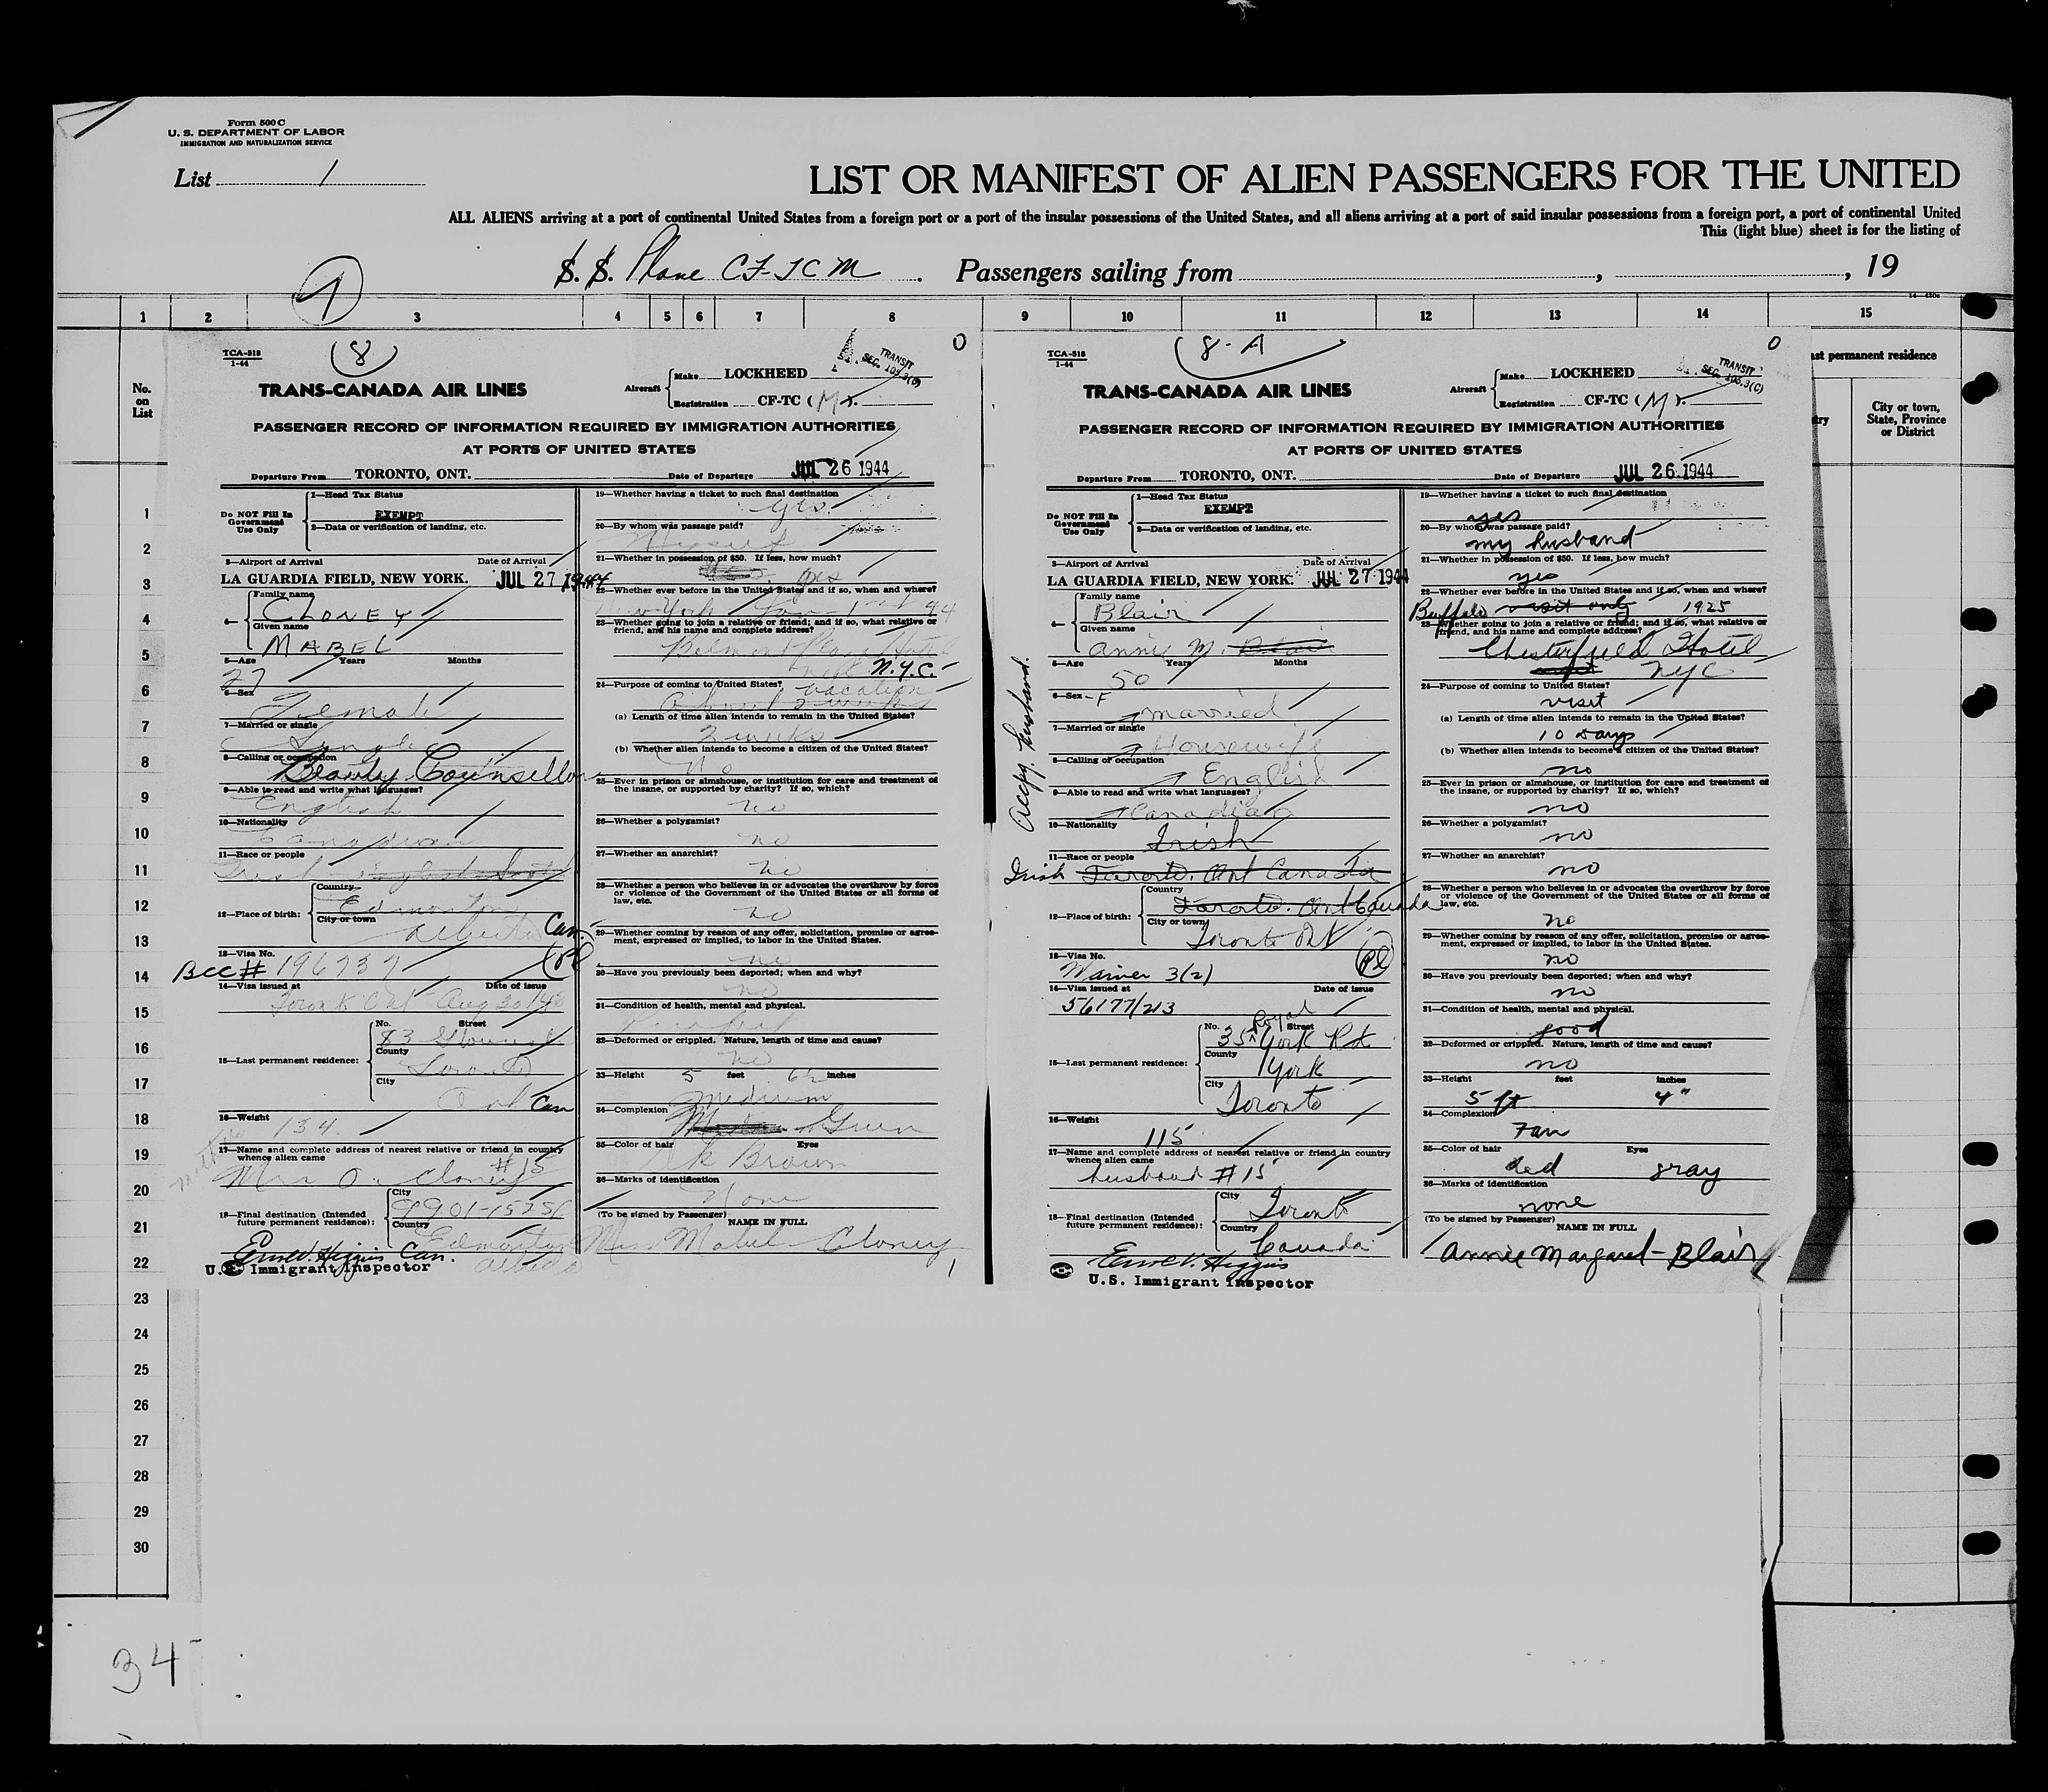 Form 500 C
U. S. DEPARTMENT OF LABOR
IMMIGRATION AND NATURALIZATION SERVICE
List 1
LIST OR MANIFEST OF ALIEN PASSENGERS FOR THE UNITED
ALL ALIENS arriving at a port of continental United States from a foreign port or a port of the insular possessions of the United States, and all aliens arriving at a port of said insular possessions from a foreign port, a port of continental United
This (light blue) sheet is for the listing of
S. S. Plane CF-TCM. Passengers sailing from , , 19
1 2 3 4 5 6 7 8 9 10 11 12 13 14 15
No. on List
ast permanent residence
try
City or town, State, Province or District
1
2
3
4
5
6
7
8
9
10
11
12
13
14
15
16
17
18
19
20
21
22
23
24
25
26
27
28
29
30
34
TCA-518
1-44
8
0
TRANSIT
SEC. 103.3(C)
TRANS-CANADA AIR LINES
Aircraft Make LOCKHEED
Registration CF-TC (M).
PASSENGER RECORD OF INFORMATION REQUIRED BY IMMIGRATION AUTHORITIES
AT PORTS OF UNITED STATES
Departure From TORONTO, ONT. Date of Departure JUL 26 1944
Do NOT Fill In Government Use Only
1—Head Tax Status
EXEMPT
2—Data or verification of landing, etc.
3—Airport of Arrival Date of Arrival
LA GUARDIA FIELD, NEW YORK. JUL 27 1944
4— Family name
CLONEY
Given name
MABEL
5—Age Years Months
27
6—Sex
Female
7—Married or single
Single
8—Calling or occupation
Beauty Counsellor
9—Able to read and write what languages?
English
10—Nationality
Canadian
11—Race or people
Irish
12—Place of birth: Country
Edmonton
City or town
Alberta Can.
13—Visa No.
BCC# 196737
14—Visa issued at Date of issue
Toronto Ont Aug 30/43
15—Last permanent residence: No. Street
83
County
Toronto
City
Ont Can
16—Weight
134
17—Name and complete address of nearest relative or friend in country whence alien came
mother
Mrs O. Cloney #15
18—Final destination (Intended future permanent residence): City
9901-152 St
Country
Edmonton
Alberta
Can.
U.S. Immigrant Inspector
19—Whether having a ticket to such final destination
yes
20—By whom was passage paid?
Myself
21—Whether in possession of $50. If less, how much?
yes
22—Whether ever before in the United States and if so, when and where?
New York Jan 1st 44
23—Whether going to join a relative or friend; and if so, what relative or friend, and his name and complete address?
Belmont Plaza Hotel
N.Y.C.
24—Purpose of coming to United States? vacation
About 2 weeks
(a) Length of time alien intends to remain in the United States?
2 weeks
(b) Whether alien intends to become a citizen of the United States?
No
25—Ever in prison or almshouse, or institution for care and treatment of the insane, or supported by charity? If so, which?
no
26—Whether a polygamist?
no
27—Whether an anarchist?
no
28—Whether a person who believes in or advocates the overthrow by force or violence of the Government of the United States or all forms of law, etc.
no
29—Whether coming by reason of any offer, solicitation, promise or agreement, expressed or implied, to labor in the United States.
no
30—Have you previously been deported; when and why?
no
31—Condition of health, mental and physical.
32—Deformed or crippled. Nature, length of time and cause?
no
33—Height 5 feet 6½ inches
Medium
34—Complexion
Green
35—Color of hair Eyes
Dk Brown
36—Marks of identification
None
(To be signed by Passenger) NAME IN FULL
Miss Mabel Cloney
1
TCA-518
1-44
8-A
0
TRANSIT
SEC. 103.3(C)
TRANS-CANADA AIR LINES
Aircraft Make LOCKHEED
Registration CF-TC (M).
PASSENGER RECORD OF INFORMATION REQUIRED BY IMMIGRATION AUTHORITIES
AT PORTS OF UNITED STATES
Departure From TORONTO, ONT. Date of Departure JUL 26 1944
Do NOT Fill In Government Use Only
1—Head Tax Status
EXEMPT
2—Data or verification of landing, etc.
3—Airport of Arrival Date of Arrival
LA GUARDIA FIELD, NEW YORK. JUL 27 1944
4— Family name
Blair
Given name
Annie M. Blair
Accpg. husband.
5—Age Years Months
50
6—Sex -F
married
7—Married or single
Housewife
8—Calling of occupation
English
9—Able to read and write what languages?
Canadian
10—Nationality
Irish
11—Race or people
Irish Toronto. Ont Canada
12—Place of birth: Country
Toronto. Ont Canada
City or town
Toronto Ont
13—Visa No.
Waiver 3(2)
14—Visa issued at Date of issue
56177/213
15—Last permanent residence: No. Street
35 Royal York Rd.
County
York
City
Toronto
16—Weight
115
17—Name and complete address of nearest relative or friend in country whence alien came
husband #15
18—Final destination (Intended future permanent residence): City
Toronto
Country
Canada
U.S. Immigrant Inspector
19—Whether having a ticket to such final destination
yes
20—By whom was passage paid?
my husband
21—Whether in possession of $50. If less, how much?
yes
22—Whether ever before in the United States and if so, when and where?
Buffalo visit only 1925
23—Whether going to join a relative or friend; and if so, what relative or friend, and his name and complete address?
Chesterfield Hotel
NYC
24—Purpose of coming to United States?
visit
(a) Length of time alien intends to remain in the United States?
10 Days
(b) Whether alien intends to become a citizen of the United States?
no
25—Ever in prison or almshouse, or institution for care and treatment of the insane, or supported by charity? If so, which?
no
26—Whether a polygamist?
no
27—Whether an anarchist?
no
28—Whether a person who believes in or advocates the overthrow by force or violence of the Government of the United States or all forms of law, etc.
no
29—Whether coming by reason of any offer, solicitation, promise or agreement, expressed or implied, to labor in the United States.
no
30—Have you previously been deported; when and why?
no
31—Condition of health, mental and physical.
good
32—Deformed or crippled. Nature, length of time and cause?
no
33—Height feet inches
5 ft 4"
34—Complexion
Fair
35—Color of hair Eyes
red gray
36—Marks of identification
none
(To be signed by Passenger) NAME IN FULL
Annie Margaret Blair